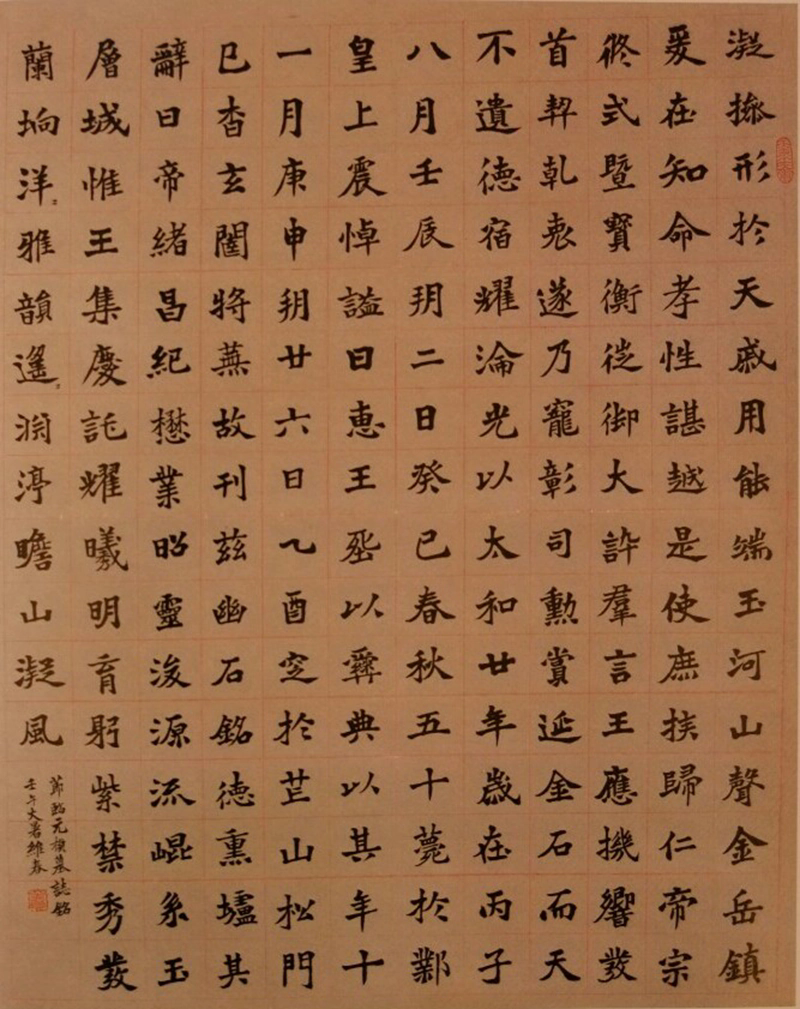 凝操形於天戚用能端玉河山聲金岳鎮
爰在知命孝性諶越是使庶族歸仁帝宗
攸式暨寶衡徙御大許羣言王應機響發
首契乾衷遂乃寵彰司勳賞延金石而天
不遺德宿耀淪光以太和廿年歲在丙子
八月壬辰朔二日癸巳春秋五十薨於鄴
皇上震悼謚曰惠王葬以彝典以其年十
一月庚申朔廿六日乙酉窆於芒山松門
已杳玄闥將蕪故刊茲幽石銘德熏壚其
辭曰帝緒昌紀懋業昭靈浚源流崐系玉
層城惟王集慶託耀曦明育躬紫禁秀發
蘭坰洋〻雅韻遙〻淵渟瞻山凝風
節臨元楨墓誌銘
壬午大暑維春